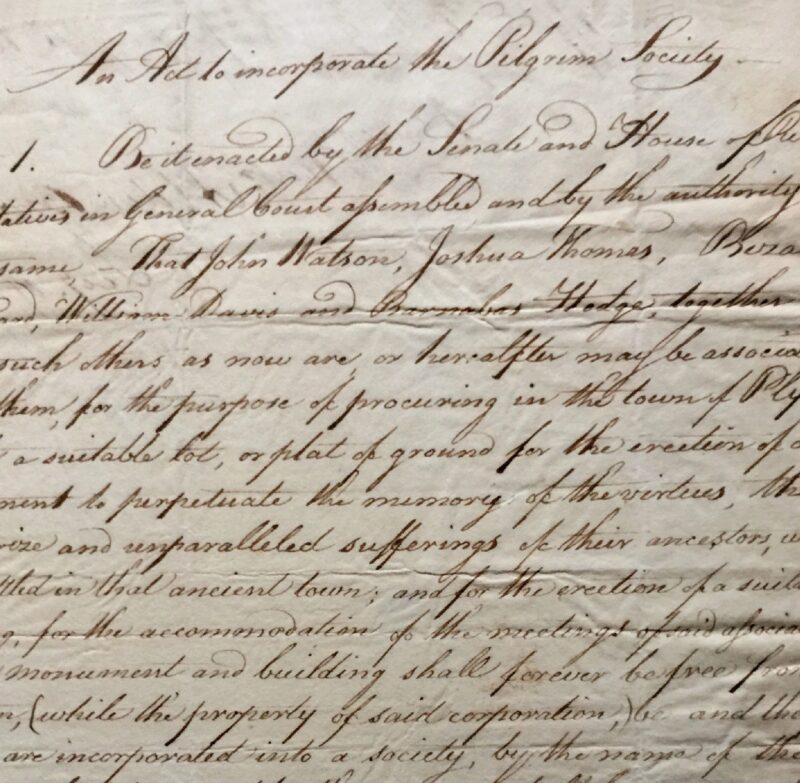 An Act to incorporate the Pilgrim Society
1. Be it enacted by the Senate and House of Re
tatives in General Court assembled, and by the authority
same That John Watson, Joshua Thomas, Beza
ard, William Davis and Barnabas Hedge, together
such others as now are, or hereafter may be associa
them, for the purpose of procuring in the town of Ply
a suitable lot, or plat of ground for the erection of a
ment to perpetuate the memory of the virtues, the
rize and unparalleled sufferings of their ancestors, w
ttled in that ancient town; and for the erection of a suita
g, for the accommodation of the meetings of said associa
monument and building shall forever be free from
n, (while the property of said corporation,) be and the
are incorporated into a society, by the name of the